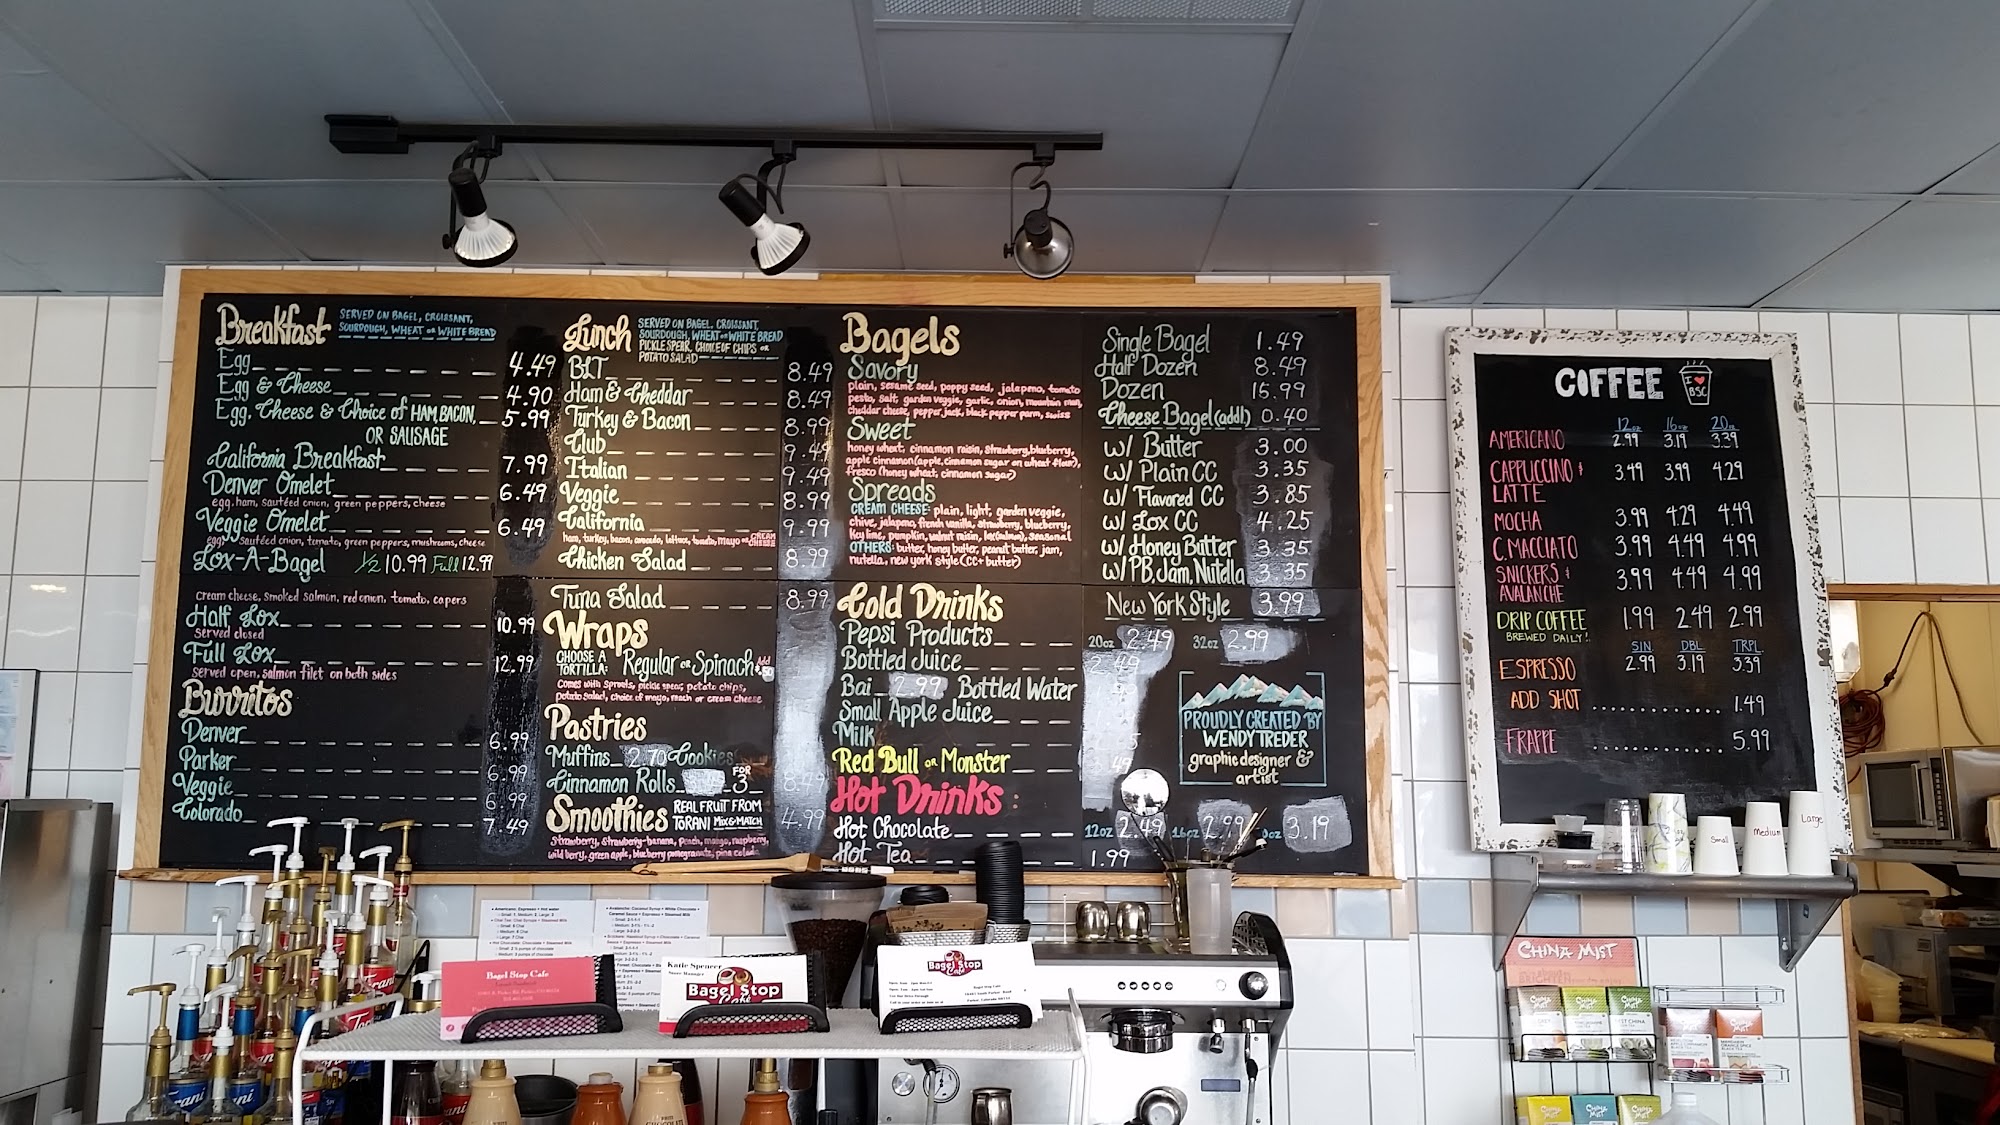 Breakfast
SERVED ON BAGEL, CROISSANT,
SOURDOUGH, WHEAT OR WHITE BREAD
Egg 4.49
Egg & Cheese 4.90
Egg, Cheese & Choice of HAM, BACON, 5.99
OR SAUSAGE
California Breakfast 7.99
Denver Omelet 6.49
egg, ham, sautéed onion, green peppers, cheese
Veggie Omelet 6.49
egg, sautéed onion, tomato, green peppers, mushrooms, cheese
Lox-A-Bagel 1/2 10.99 Full 12.99
cream cheese, smoked salmon, red onion, tomato, capers
Half Lox 10.99
served closed
Full Lox 12.99
served open, salmon filet on both sides
Burritos
Denver 6.99
Parker 6.99
Veggie 6.99
Colorado 7.49
Lunch
SERVED ON BAGEL, CROISSANT,
SOURDOUGH, WHEAT OR WHITE BREAD
PICKLE SPEAR, CHOICE OF CHIPS OR
POTATO SALAD
BLT 8.49
Ham & Cheddar 8.49
Turkey & Bacon 8.99
Club 9.49
Italian 9.49
Veggie 8.99
California 9.99
ham, turkey, bacon, avocado, lettuce, tomato, mayo OR CREAM CHEESE
Chicken Salad 8.99
Tuna Salad 8.99
Wraps
CHOOSE A
TORTILLA: Regular OR Spinach Add
Comes with sprouts, pickle spear, potato chips,
potato salad, choice of mayo, ranch or cream cheese
Pastries
Muffins 2.70 Cookies
Cinnamon Rolls FOR 3
Smoothies REAL FRUIT FROM
TORANI MIX & MATCH 4.99
Strawberry, Strawberry-banana, peach, mango, raspberry,
wild berry, green apple, blueberry pomegranate, pina colada
Bagels
Savory
plain, sesame seed, poppy seed, jalapeno, tomato
pesto, salt, garden veggie, garlic, onion, mountain man,
cheddar cheese, pepper jack, black pepper parm, swiss
Sweet
honey wheat, cinnamon raisin, strawberry, blueberry,
apple cinnamon (apple, cinnamon sugar on wheat flour),
fresco (honey wheat, cinnamon sugar)
Spreads
CREAM CHEESE: plain, light, garden veggie,
chive, jalapeno, french vanilla, strawberry, blueberry,
key lime, pumpkin, walnut raisin, lox (salmon), seasonal
OTHERS: butter, honey butter, peanut butter, jam,
nutella, new york style (CC + butter)
Single Bagel 1.49
Half Dozen 8.49
Dozen 15.99
Cheese Bagel (addl.) 0.40
w/ Butter 3.00
w/ Plain CC 3.35
w/ Flavored CC 3.85
w/ Lox CC 4.25
w/ Honey Butter 3.35
w/ PB, Jam, Nutella 3.35
New York Style 3.99
Cold Drinks
Pepsi Products 20oz 2.49 32oz 2.99
Bottled Juice 2.49
Bai 2.99 Bottled Water
Small Apple Juice
Milk
Red Bull OR Monster
Hot Drinks:
Hot Chocolate 12oz 2.49 16oz 2.99 3.19
Hot Tea 1.99
PROUDLY CREATED BY
WENDY TREDER
graphic designer &
artist
COFFEE
I ♥
BSC
12oz 16oz 20oz
AMERICANO 2.99 3.19 3.39
CAPPUCCINO & 3.49 3.99 4.29
LATTE
MOCHA 3.99 4.29 4.49
C. MACCIATO 3.99 4.49 4.99
SNICKERS & 3.99 4.49 4.99
AVALANCHE
DRIP COFFEE 1.99 2.49 2.99
BREWED DAILY!
SIN DBL TRPL
ESPRESSO 2.99 3.19 3.39
ADD SHOT ............ 1.49
FRAPPE ............ 5.99
Small
Medium
Large
CHINA MIST
Bagel Stop Cafe
Katie Spencer
Store Manager
Bagel Stop
Café
Bagel Stop
Bagel Stop Cafe